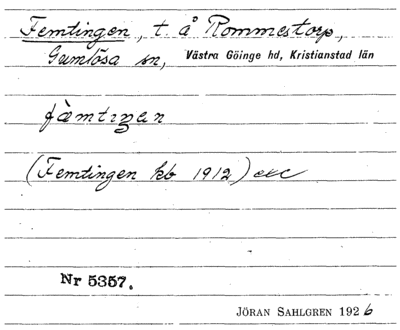 Femtingen, t. å Rommestorp,
Gumlösa sn, Västra Göinge hd, Kristianstad län
fæ̀mtıŋən
(Femtingen kb 1912) etc
Nr 5357.
JÖRAN SAHLGREN 1926